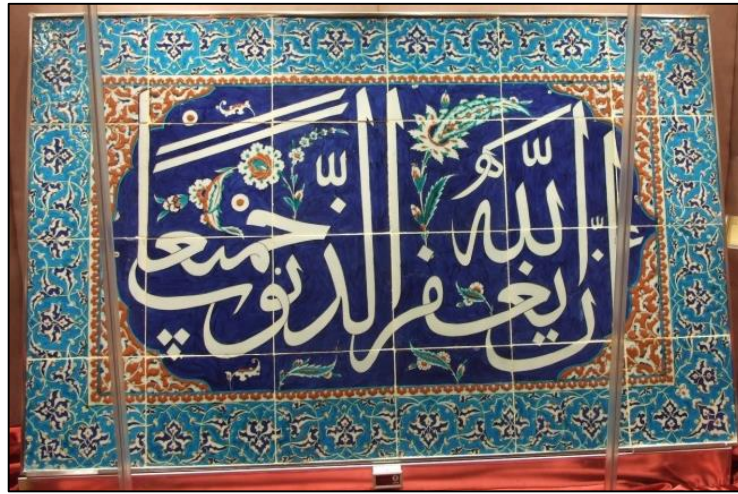 إن الله يغفر الذنوب جميعا